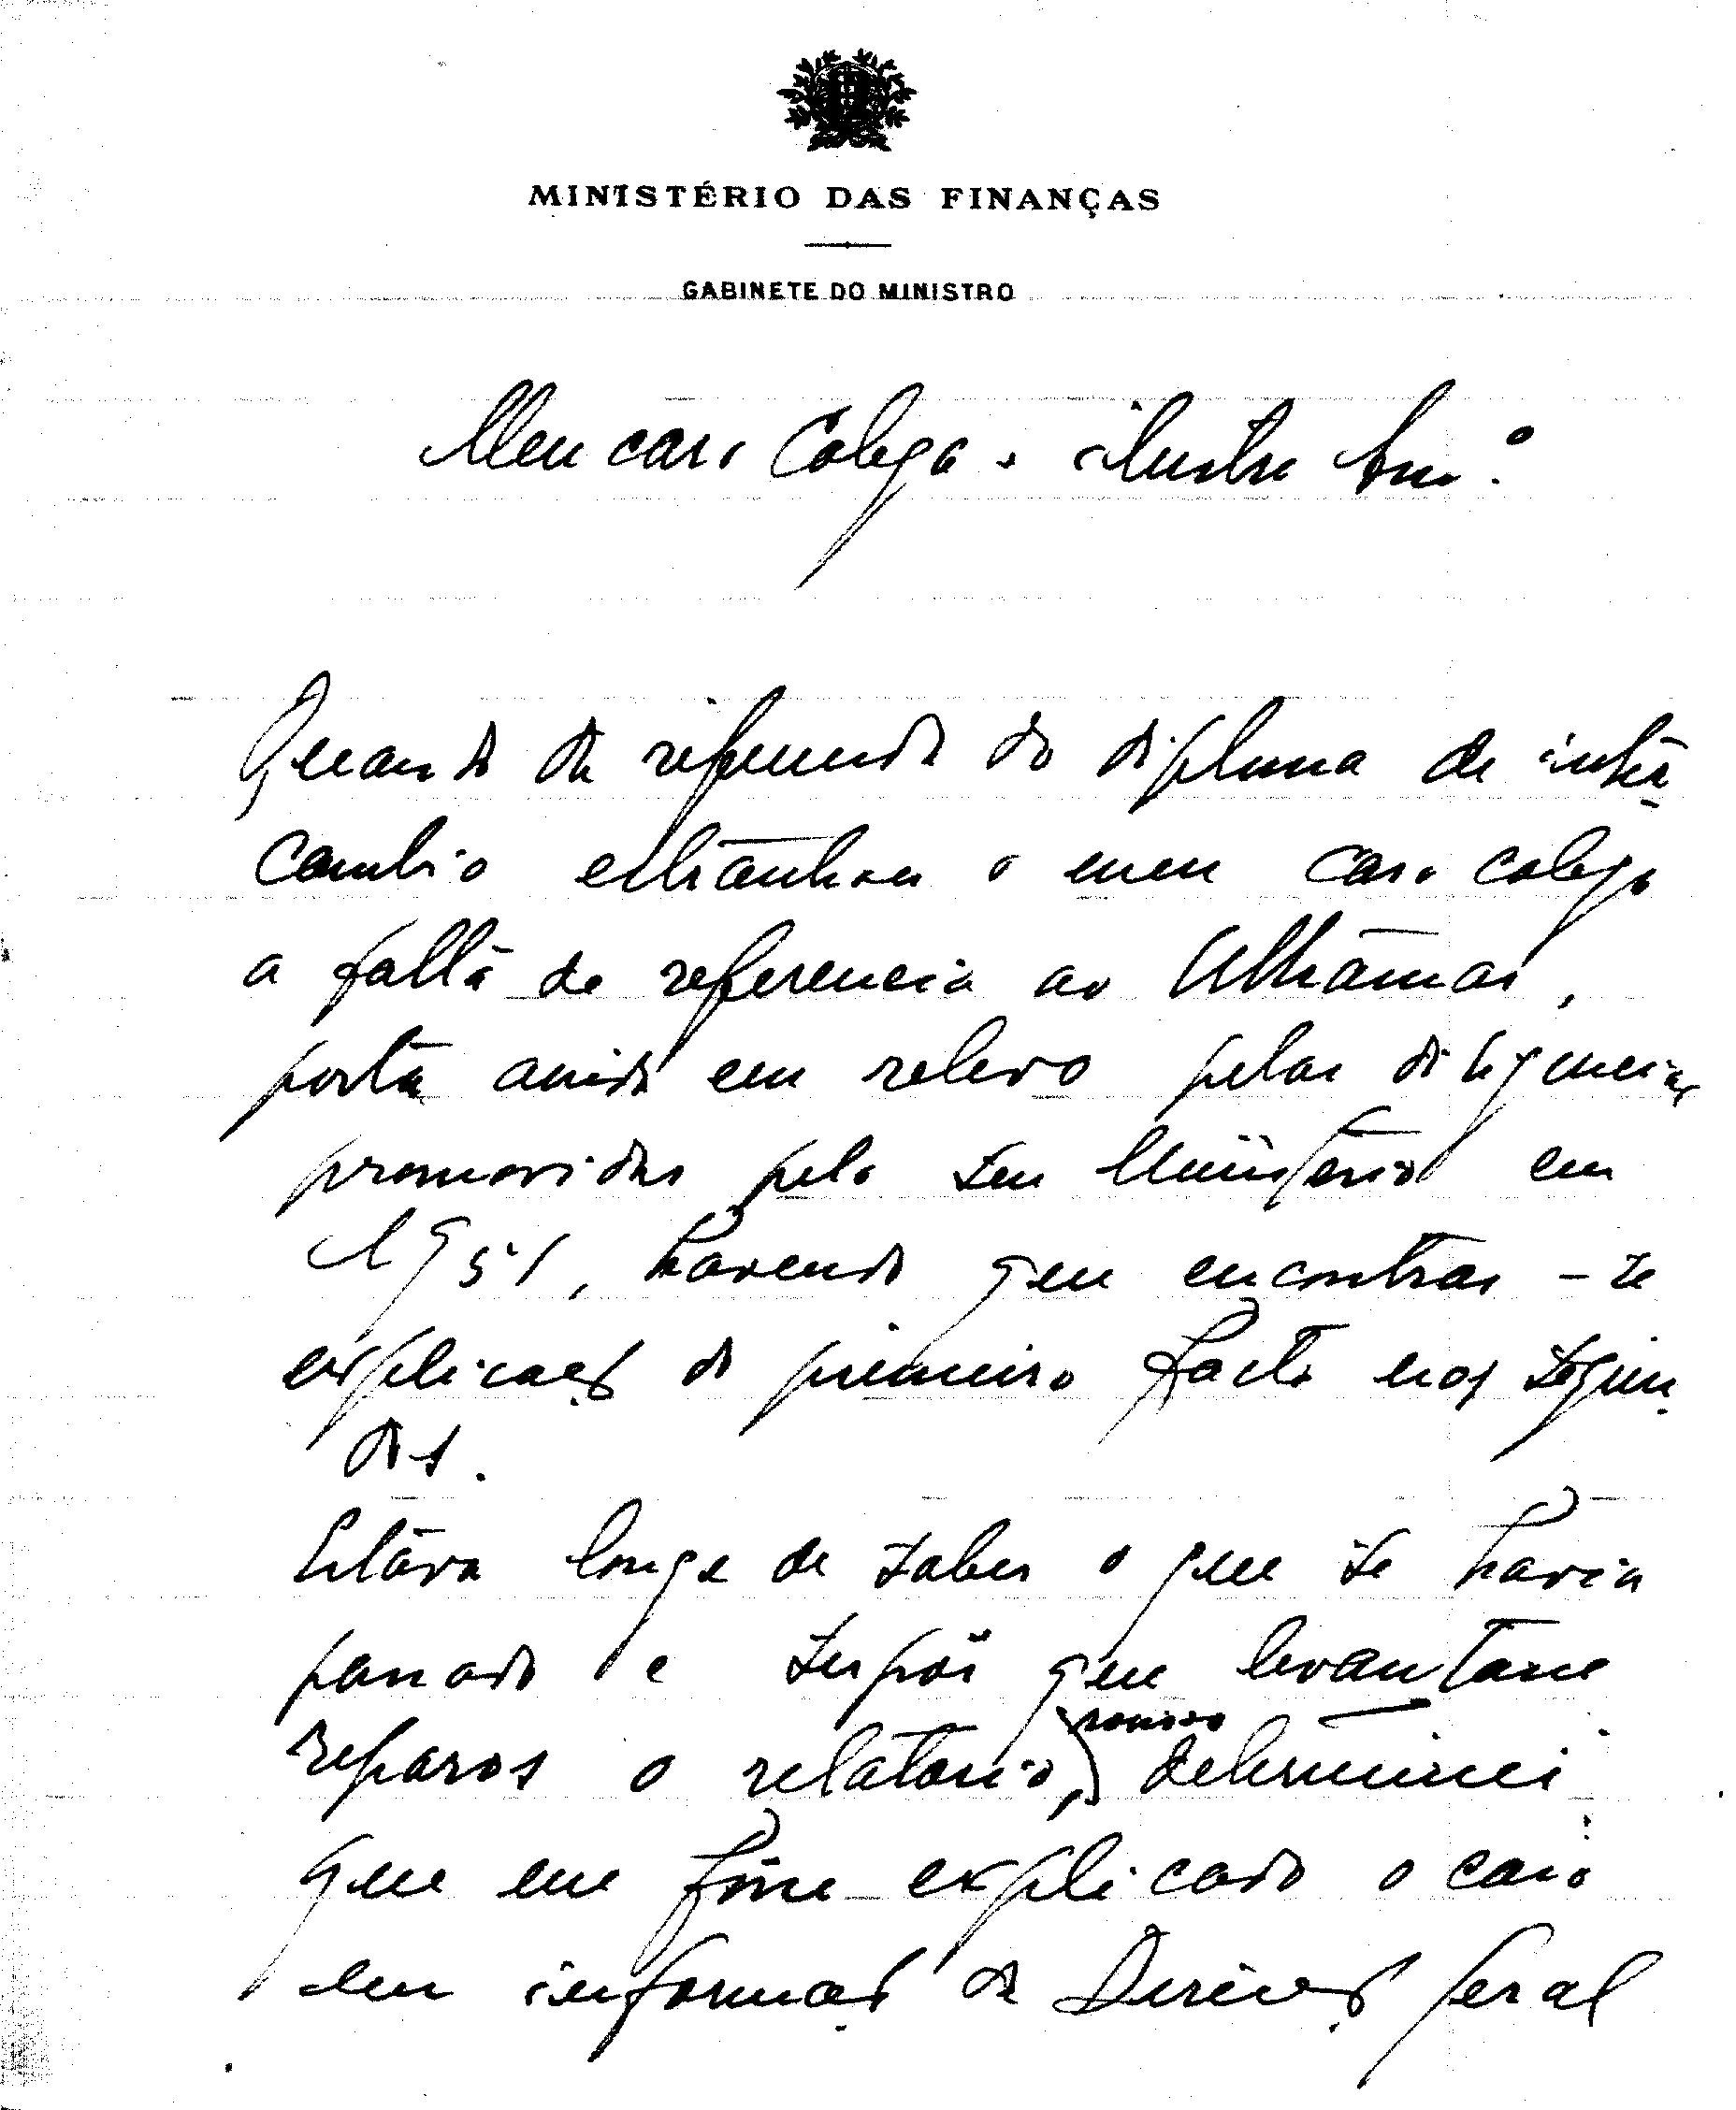 MINISTÉRIO DAS FINANÇAS
GABINETE DO MINISTRO
Meu caro Colega e ilustre Am.º
Quando da referenda do diploma de inter
cambio estranhou o meu caro colega
a falta de referencia ao Ultramar,
posta ainda em relevo pelas diligencias
promovidas pelo seu Ministério em
1951, havendo que encontrar-se
explicação do primeiro facto nos segun
dos.
Estava longe de saber o que se havia
passado e supôs que levantasse
reparos o relatorio, determinei
que me fosse explicado o caso
em informação da Direcção Geral